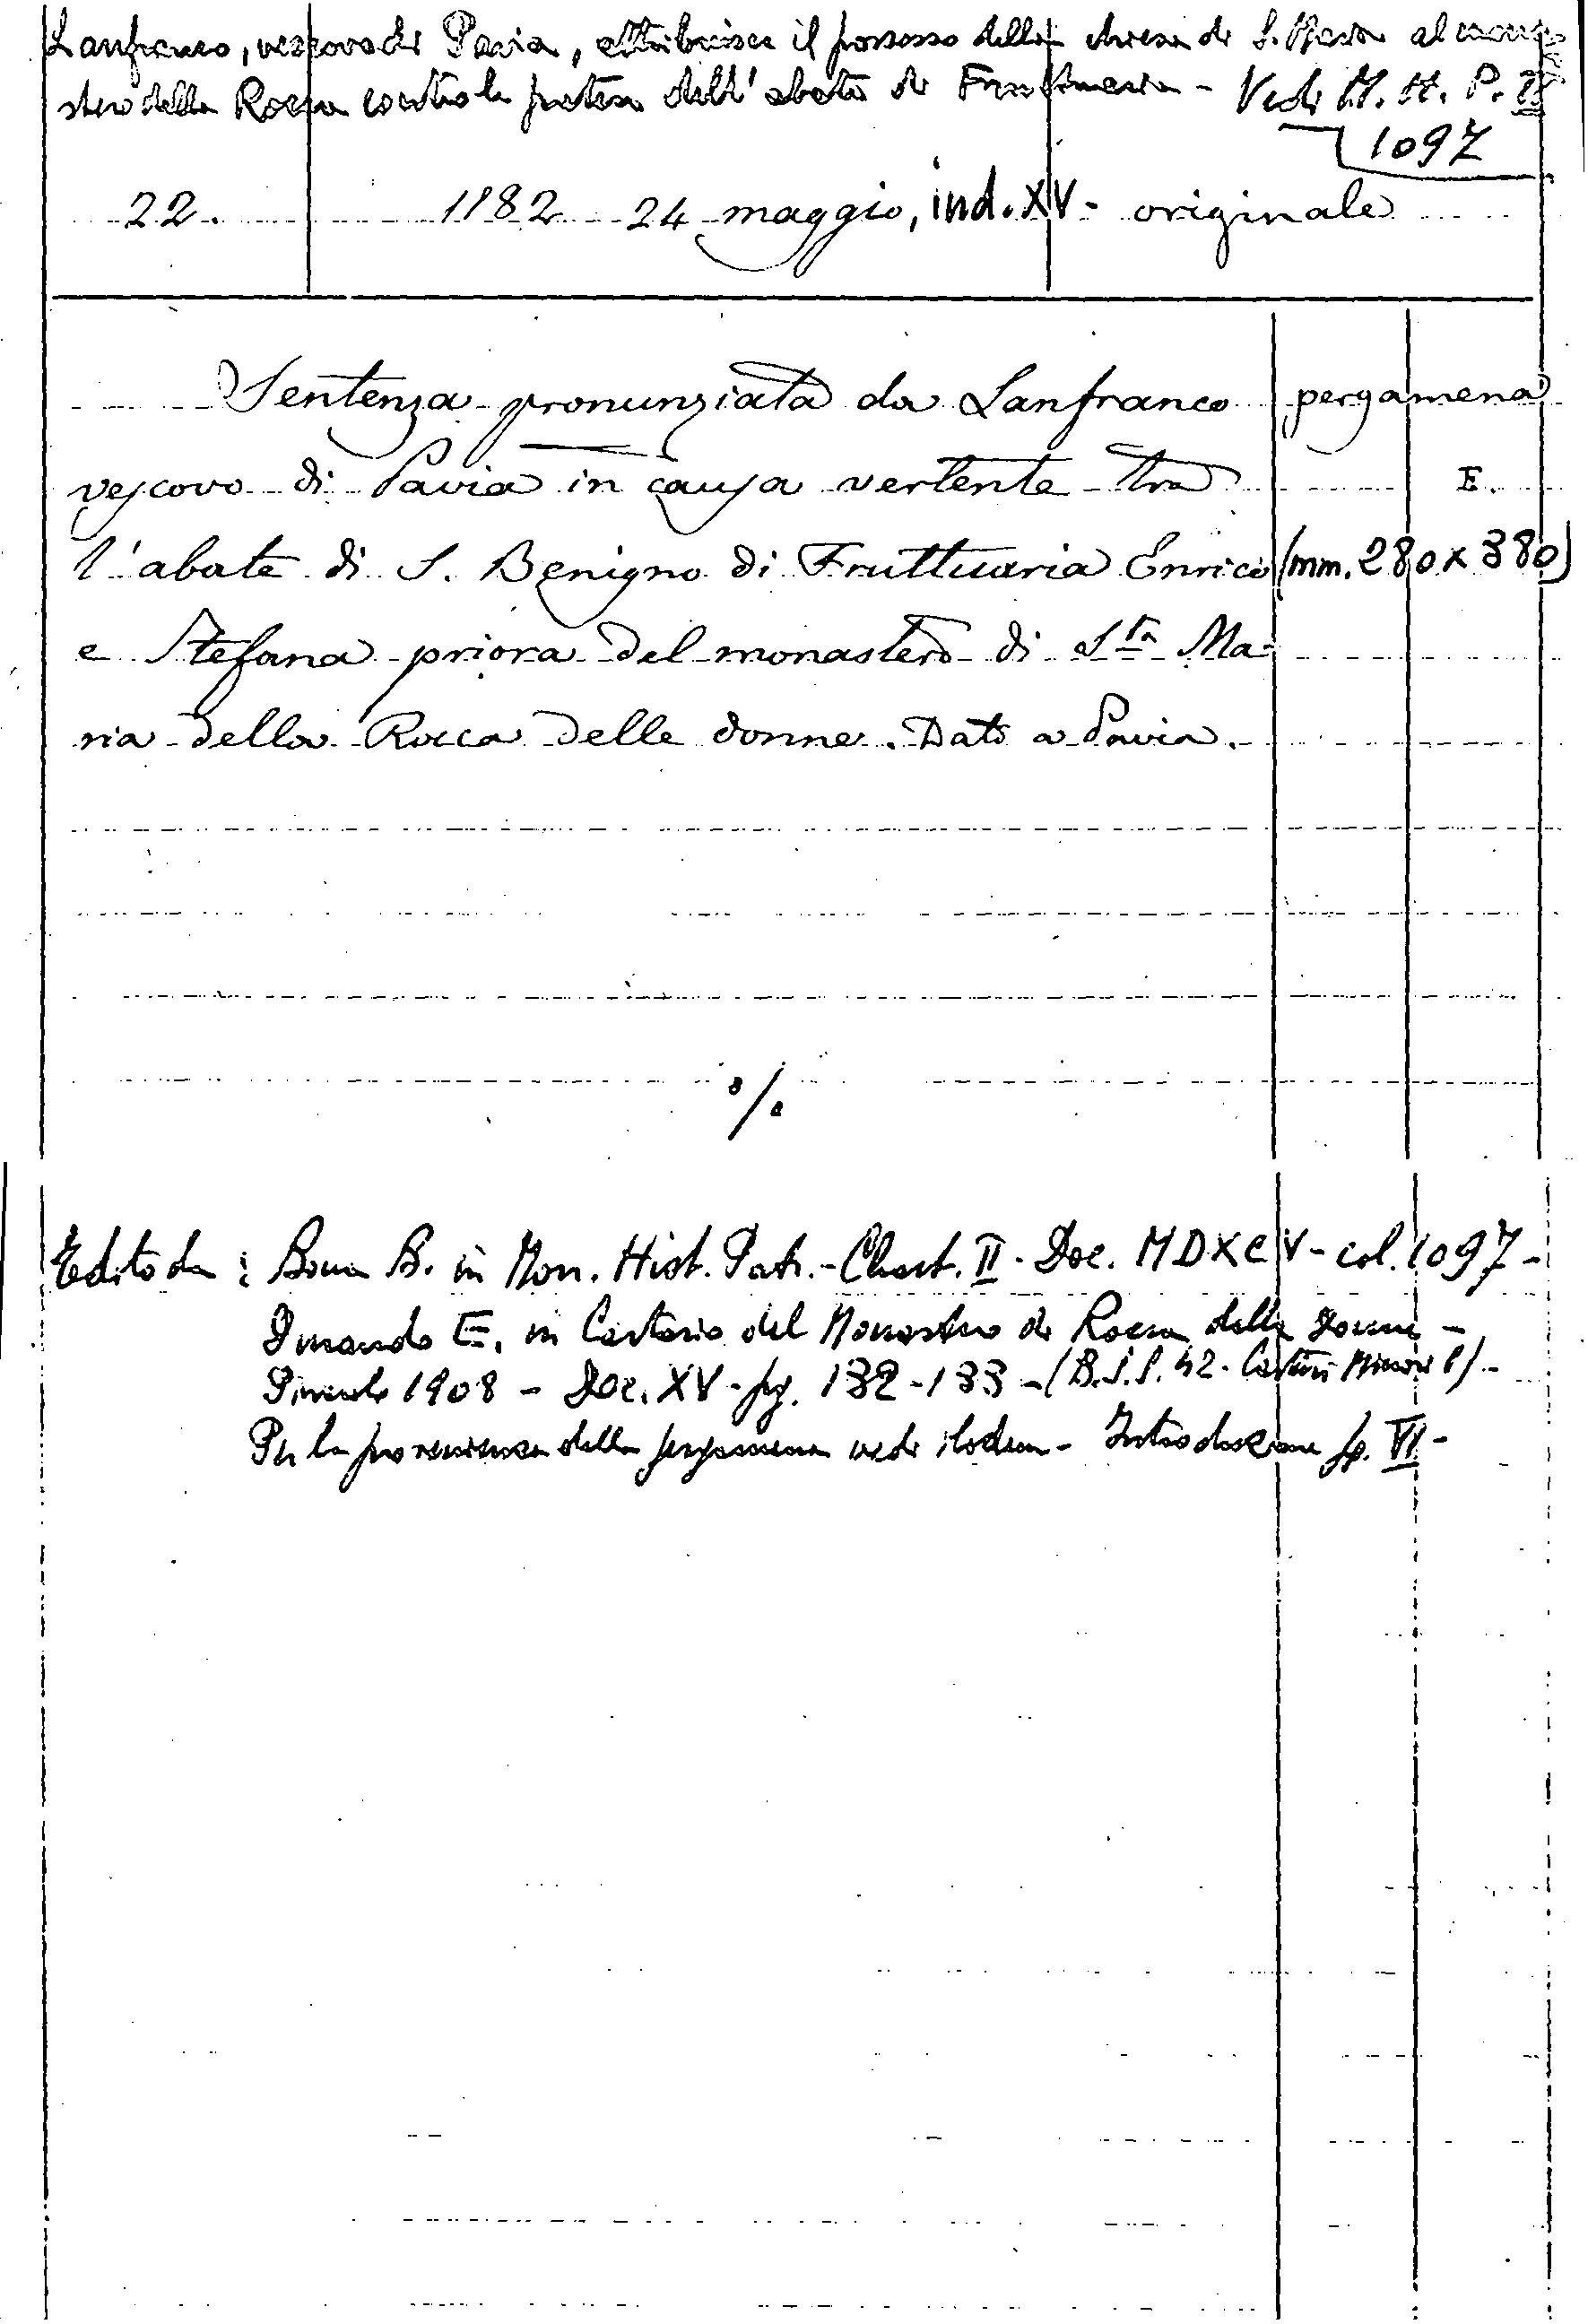 Lanfranco, vescovo di Pavia, attribuisce il possesso della chiesa di S. Maria al mona-
stero della Rocca contro le pretese dell' abate di Fruttuaria - Vedi M. H. P. II
1097
22. 1182 24 maggio, ind. XV - originale
Sentenza pronunziata da Lanfranco pergamena
vescovo di Pavia in causa vertente tra E.
l'abate di S. Benigno di Fruttuaria Enrico (mm. 280 x 380)
e Stefana priora del monastero di Sta Ma-
ria della Rocca delle donne. Dato a Pavia.
%
Edito da : Bona B. in Mon. Hist. Patr. - Chart. II - Doc. MDXCV - col. 1097 -
Durando E. in Cartario del Monastero di Rocca delle Donne -
Pinerolo 1908 - Doc. XV - pg. 132 - 133 - (B.S.S. 42 - Cartari Minori 1) -
Per la provenienza della pergamena vedi ibidem - Introduzione pg. VI -